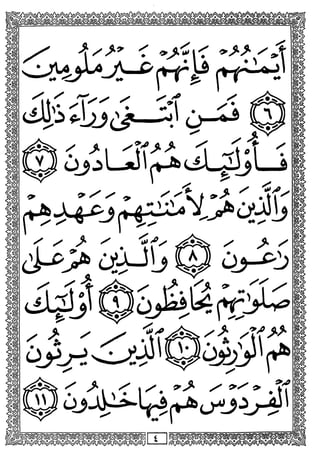 أَيْمَـٰنُهُمْ فَإِنَّهُمْ غَيْرُ مَلُومِينَ
٦ فَمَنِ ٱبْتَغَىٰ وَرَآءَ ذَٰلِكَ
فَأُو۟لَـٰٓئِكَ هُمُ ٱلْعَادُونَ ٧
وَٱلَّذِينَ هُمْ لِأَمَـٰنَـٰتِهِمْ وَعَهْدِهِمْ
رَٰعُونَ ٨ وَٱلَّذِينَ هُمْ عَلَىٰ
صَلَوَٰتِهِمْ يُحَافِظُونَ ٩ أُو۟لَـٰٓئِكَ
هُمُ ٱلْوَٰرِثُونَ ١٠ ٱلَّذِينَ يَرِثُونَ
ٱلْفِرْدَوْسَ هُمْ فِيهَا خَـٰلِدُونَ ١١
٤